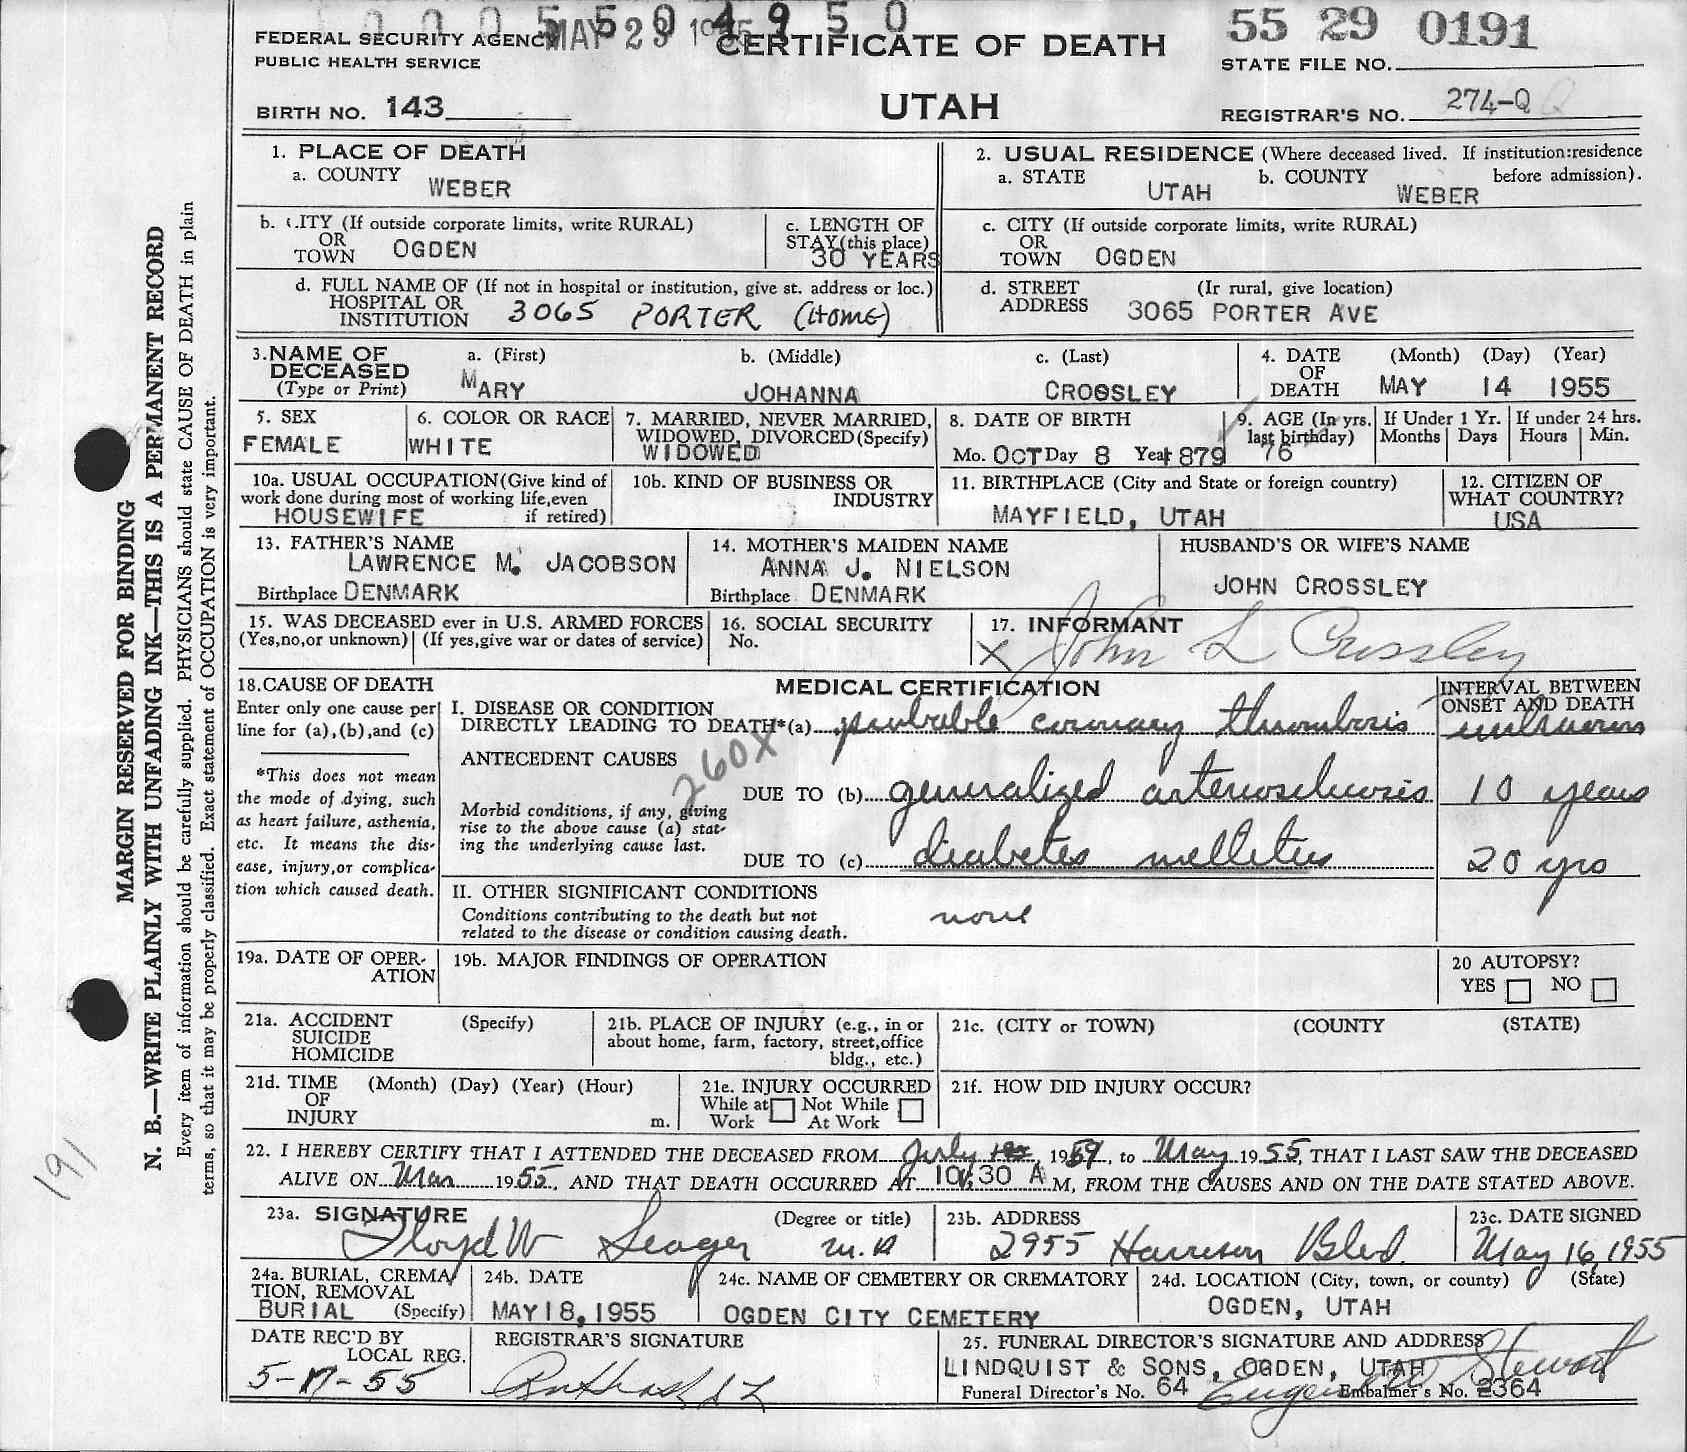 0 0 0 5 5 0 4 9 5 0
MAY 23 1955
55 29 0191
FEDERAL SECURITY AGENCY
PUBLIC HEALTH SERVICE
CERTIFICATE OF DEATH
STATE FILE NO.
BIRTH NO. 143
UTAH
REGISTRAR'S NO. 274-Q
1. PLACE OF DEATH
a. COUNTY WEBER
2. USUAL RESIDENCE (Where deceased lived. If institution:residence
a. STATE UTAH b. COUNTY WEBER before admission).
b. CITY (If outside corporate limits, write RURAL)
OR
TOWN OGDEN
c. LENGTH OF
STAY(this place)
30 YEARS
c. CITY (If outside corporate limits, write RURAL)
OR
TOWN OGDEN
d. FULL NAME OF (If not in hospital or institution, give st. address or loc.)
HOSPITAL OR
INSTITUTION 3065 PORTER (HOME)
d. STREET (Ir rural, give location)
ADDRESS 3065 PORTER AVE
3. NAME OF
DECEASED
(Type or Print)
a. (First) b. (Middle) c. (Last)
MARY JOHANNA CROSSLEY
4. DATE (Month) (Day) (Year)
OF
DEATH MAY 14 1955
5. SEX
FEMALE
6. COLOR OR RACE
WHITE
7. MARRIED, NEVER MARRIED,
WIDOWED, DIVORCED(Specify)
WIDOWED
8. DATE OF BIRTH
Mo. OCT Day 8 Year 1879
9. AGE (In yrs.
last birthday)
76
If Under 1 Yr.
Months Days
If under 24 hrs.
Hours Min.
10a. USUAL OCCUPATION(Give kind of
work done during most of working life,even
HOUSEWIFE if retired)
10b. KIND OF BUSINESS OR
INDUSTRY
11. BIRTHPLACE (City and State or foreign country)
MAYFIELD, UTAH
12. CITIZEN OF
WHAT COUNTRY?
USA
13. FATHER'S NAME
LAWRENCE M. JACOBSON
Birthplace DENMARK
14. MOTHER'S MAIDEN NAME
ANNA J. NIELSON
Birthplace DENMARK
HUSBAND'S OR WIFE'S NAME
JOHN CROSSLEY
15. WAS DECEASED ever in U.S. ARMED FORCES
(Yes,no,or unknown) (If yes,give war or dates of service)
16. SOCIAL SECURITY
No.
17. INFORMANT
X John L Crossley
18. CAUSE OF DEATH
Enter only one cause per
line for (a),(b),and (c)
*This does not mean
the mode of dying, such
as heart failure, asthenia,
etc. It means the dis-
ease, injury,or complica-
tion which caused death.
MEDICAL CERTIFICATION
I. DISEASE OR CONDITION
DIRECTLY LEADING TO DEATH*(a) probable coronary thrombosis
ANTECEDENT CAUSES
260X
Morbid conditions, if any, giving
rise to the above cause (a) stat-
ing the underlying cause last.
DUE TO (b) generalized arteriosclerosis
DUE TO (c) diabetes mellitus
INTERVAL BETWEEN
ONSET AND DEATH
unknown
10 years
20 yrs
II. OTHER SIGNIFICANT CONDITIONS
Conditions contributing to the death but not
related to the disease or condition causing death.
none
19a. DATE OF OPER-
ATION
19b. MAJOR FINDINGS OF OPERATION
20 AUTOPSY?
YES NO
21a. ACCIDENT (Specify)
SUICIDE
HOMICIDE
21b. PLACE OF INJURY (e.g., in or
about home, farm, factory, street,office
bldg., etc.)
21c. (CITY or TOWN) (COUNTY (STATE)
21d. TIME (Month) (Day) (Year) (Hour)
OF
INJURY m.
21e. INJURY OCCURRED
While at Not While
Work At Work
21f. HOW DID INJURY OCCUR?
22. I HEREBY CERTIFY THAT I ATTENDED THE DECEASED FROM July 19 to May 1955, THAT I LAST SAW THE DECEASED
ALIVE ON Mar 1955, AND THAT DEATH OCCURRED AT 10:30 A M, FROM THE CAUSES AND ON THE DATE STATED ABOVE.
23a. SIGNATURE (Degree or title)
Floyd W Seager M.D
23b. ADDRESS
2955 Harrison Blvd.
23c. DATE SIGNED
May 16, 1955
24a. BURIAL, CREMA-
TION, REMOVAL
BURIAL (Specify)
24b. DATE
MAY 18, 1955
24c. NAME OF CEMETERY OR CREMATORY
OGDEN CITY CEMETERY
24d. LOCATION (City, town, or county) (State)
OGDEN, UTAH
DATE REC'D BY
LOCAL REG.
5-17-55
REGISTRAR'S SIGNATURE
25. FUNERAL DIRECTOR'S SIGNATURE AND ADDRESS
LINDQUIST & SONS, OGDEN, UTAH
Stewart
Funeral Director's No. 64 Embalmer's No. 2364
MARGIN RESERVED FOR BINDING
N. B.—WRITE PLAINLY WITH UNFADING INK—THIS IS A PERMANENT RECORD
Every item of information should be carefully supplied. PHYSICIANS should state CAUSE OF DEATH in plain
terms, so that it may be properly classified. Exact statement of OCCUPATION is very important.
191